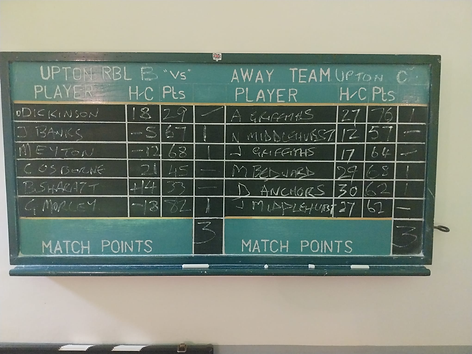 UPTON RBL B "VS" AWAY TEAM UPTON C
PLAYER H/C Pts PLAYER H/C Pts
DICKINSON 18 29 — A GRIFFITHS 27 76 1
J BANKS -5 67 1 N MIDDLEHURST 12 57 —
M EYTON -12 68 1 J GRIFFITHS 17 64 —
C OSBOURNE 21 45 — M BEDWARD 29 68 1
B +14 53 — D ANCHORS 30 62 1
G MORLEY -18 82 1 J MIDDLEHURST 27 61 —
MATCH POINTS 3 MATCH POINTS 3